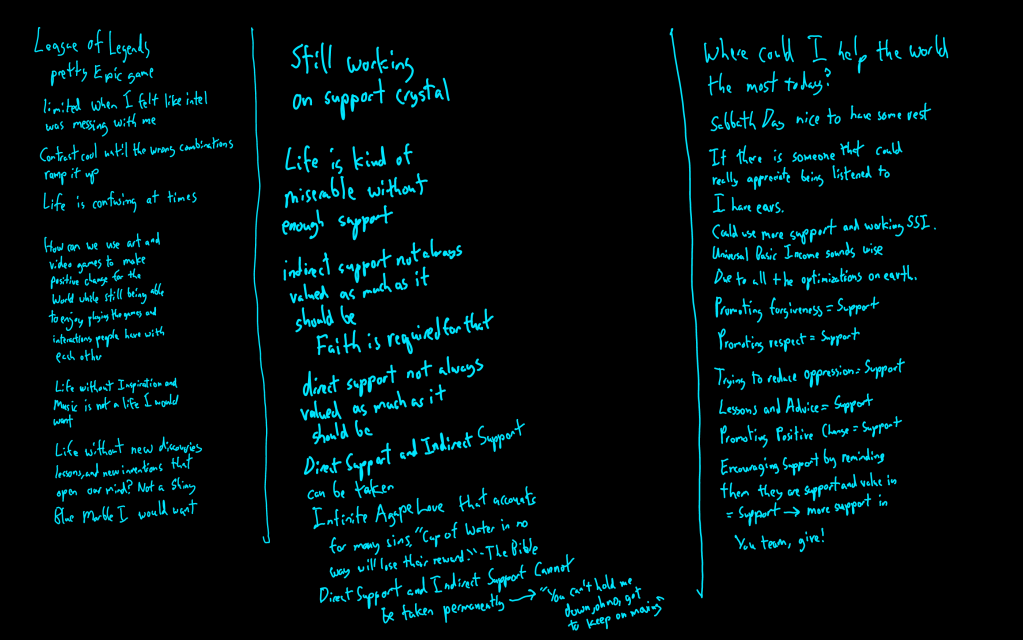 League of Legends
pretty Epic game
limited when I felt like intel
was messing with me
Contrast cool until the wrong combinations
ramp it up
Life is confusing at times
How can we use art and
video games to make
positive change for the
World while still being able
to enjoy playing the games and
interactions people have with
each other
Life without Inspiration and
Music is not a life I would
want
Life without new discoveries
lessons, and new inventions that
open our mind? Not a Shiny
Blue Marble I would want
Still working
on support crystal
Life is kind of
miserable without
enough support
indirect support not always
valued as much as it
should be
Faith is required for that
direct support not always
valued as much as it
should be
Direct Support and Indirect Support
can be taken
Infinite Agape Love that accounts
for many sins, "Cup of Water in no
way will lose their reward." - The Bible
Direct Support and Indirect Support Cannot
be taken permanently → "You can't hold me
down, oh no, got
to keep on moving"
Where could I help the world
the most today?
Sabbath Day nice to have some rest
If there is someone that could
really appreciate being listened to
I have ears.
Could use more support and working SSI.
Universal Basic Income sounds wise
Due to all the optimizations on earth.
Promoting forgiveness = Support
Promoting respect = Support
Trying to reduce oppression = Support
Lessons and Advice = Support
Promoting Positive Change = Support
Encouraging Support by reminding
them they are support and value in
= Support → more support in
You team, give!